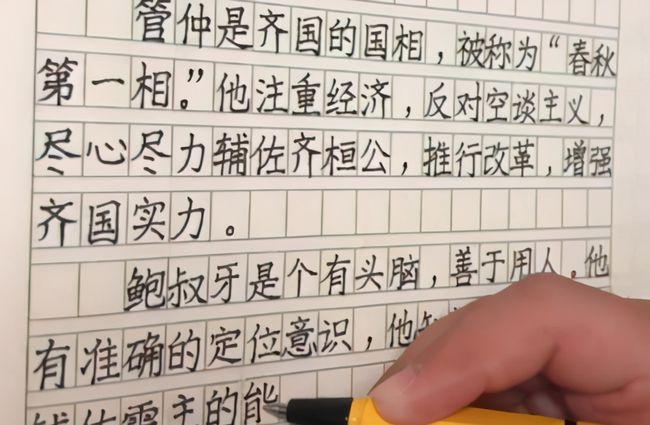 管仲是齐国的国相，被称为“春秋
第一相。”他注重经济，反对空谈主义，
尽心尽力辅佐齐桓公，推行改革，增强
齐国实力。
鲍叔牙是个有头脑，善于用人。他
有准确的定位意识，他知
佐霸主的能